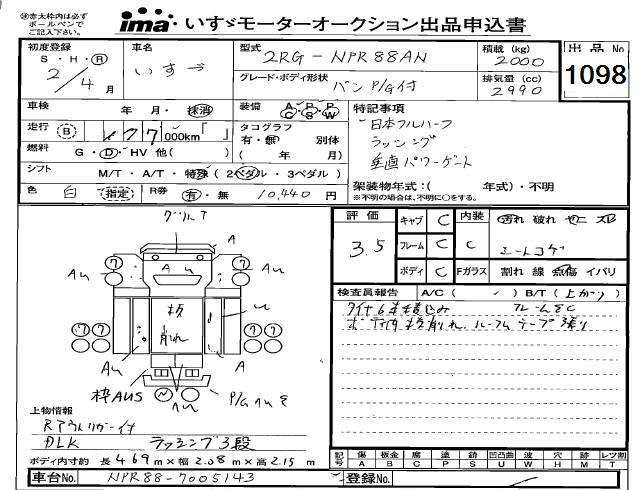 ※赤太枠内は必ず
ボールペンで
ご記入下さい。
ima・いすゞモーターオークション出品申込書
初度登録
S・H・R
2/4月
車名
いすゞ
型式
2RG-NPR88AN
グレード・ボディ形状
バン P/G付
積載(kg)
2000
排気量(cc)
2990
出品No
1098
車検 年・月・抹消
走行 B 177,000km「 」
燃料 G・D・HV 他( )
シフト M/T・A/T・特殊(2ペダル・3ペダル)
色 白 指定 R券 有・無 10,440円
装備 A/C P/S P/W
タコグラフ
有・無 別体
( 年 月)
特記事項
日本フルハーフ
ラッシング
垂直パワーゲート
架装物年式:( 年式)・不明
※不明の場合は、不明に○をする。
評価
3.5
キャブ C
フレーム C
ボデイ C
内装 C
Fガラス
汚れ 破れ ヤニ スレ
シートコゲ
割れ 線 点傷 イバリ
検査員報告 A/C( ) B/T(上がり)
タイヤ6本積込み
グリルT
A
Au
枠AUS
上物情報
Rアウトリガー付
DLK
ラッシング3段
ボディ内寸約 長 4.69m×幅 2.08m×高 2.15m
車台No. NPR88-7005143
登録No.
記号 傷 A 板金 B 腐 C 塗 P 錆 S 凹凸曲 U 波 W 穴 H 跡 M レツ割 T